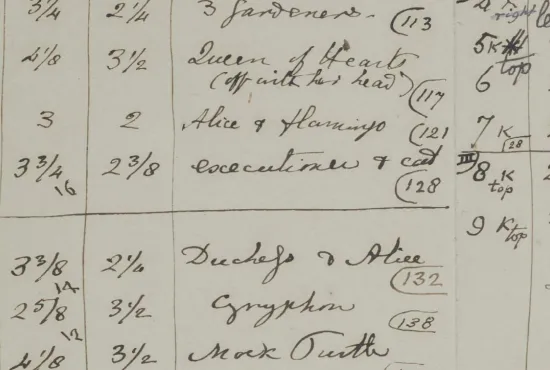 3/4 2 1/4 3 Gardeners. (113
4 1/8 3 1/2 Queen of Hearts
(off with her head) (117
3 2 Alice & Flamingo (121
3 3/4 2 3/8 executioner & cat
16 (128
3 3/8 2 1/4 Duchess & Alice
14 (132
2 5/8 3 1/2 Gryphon
12 (138
4 1/8 3 1/2 Mock Turtle
right
5 K
top
6
7 K
28
III 8 K
top
9 K top